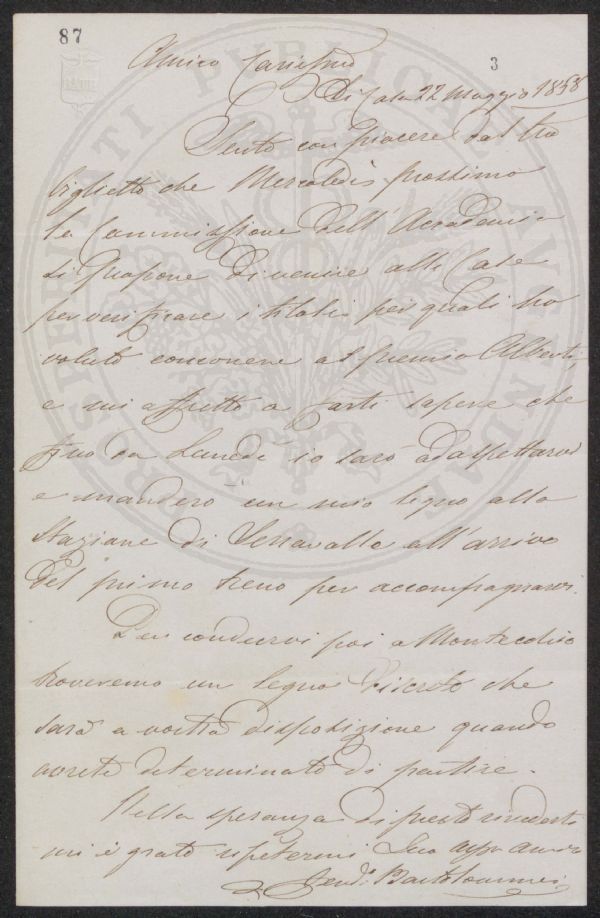 87
3
Amico Carissimo
Di Casa 22 Maggio 1858
Sento con piacere dal tuo
biglietto che Mercoledì prossimo
la Commissione dell'Accademia
si propone di venire alle Case
per verificare i titoli per quali ho
voluto concorrere al premio Alberti,
e mi affretto a farti sapere che
fino da Lunedì io sarò ad aspettarvi
e manderò un mio legno alla
Stazione di Serravalle all'arrivo
del primo treno per accompagnarvi.
Per condurvi poi a Montecchio
troveremo un legno discreto che
sarà a vostra disposizione quando
avrete determinato di partire.
Nella speranza di presto rivederti
mi è grato ripetermi Tuo affmo amico
Bartolommei
PROSPERITATI PUBLICAE AUGENDAE